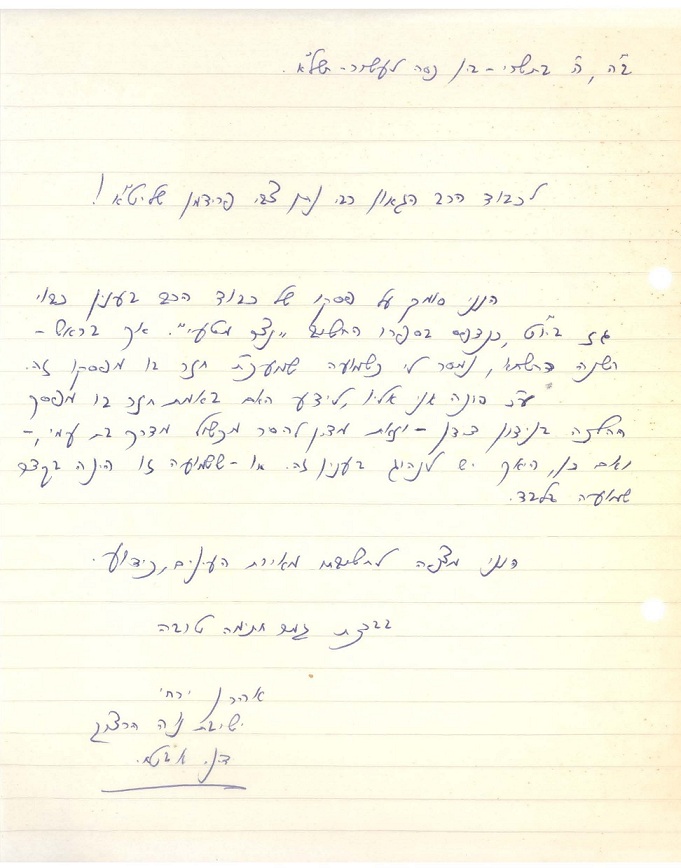 ב"ה, ה' בתשרי - בין כסה לעשור - תשל"א.
לכבוד הרב הגאון רבי נתן צבי פרידמן שליט"א!
הנני סומך על פסקו של כבוד הרב בענין כבוי
גז ביו"ט, כנדפס בספרו החשוב "נצר מטעי". אך בראש-
השנה דהשתא, נמסר לי כשמועה שמעכ"ת חזר בו מפסקו זה.
ע"כ פונה אני אליו, לידע האם באמת חזר בו מפסק
ההלכה בנידון דידן - וזאת מדין להסר מכשול מדרך בת עמי, -
ואם כן, היאך יש לנהוג בענין זה. או - ששמועה זו הינה בקצה
שמועה בלבד.
הנני מצפה לתשובתו מאירת העינים, כידוע.
בברכת גמר חתימה טובה
אהרן ירחי
ישיבת ניר